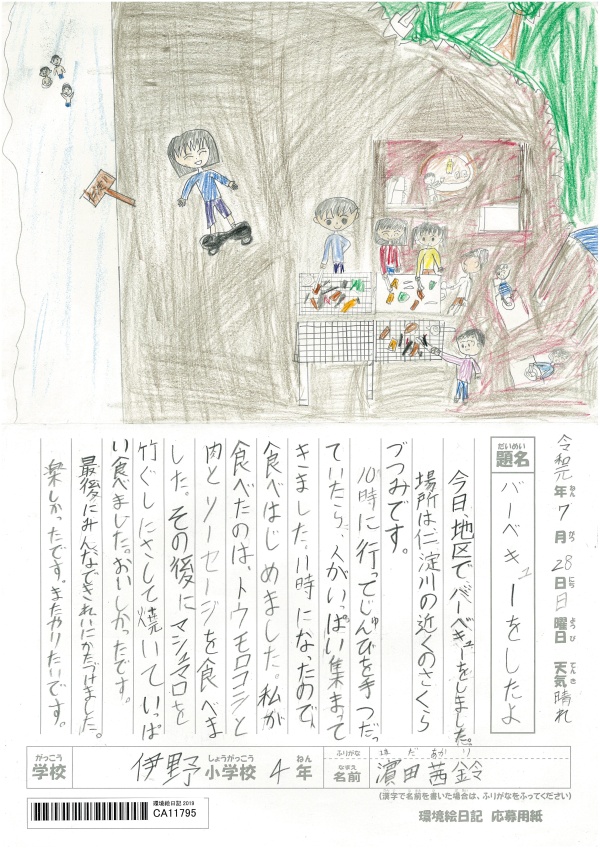 令和元年ねん7月がつ28日にち日曜日ようび 天気てんき 晴れ
だいめい
題名
バーベキューをしたよ
今日、地区で、バーベキューをしました。
場所は、仁淀川の近くのさくら
づつみです。
10時に行ってじゅんびを手つだっ
ていたら、人がいっぱい集まって
きました。11時になったので、
食べはじめました。私が
食べたのは、トウモロコシと
肉とソーセージを食べま
した。その後にマシュマロを
竹ぐしにさして焼いて、いっぱ
い食べました。おいしかったです。
最後にみんなできれいにかたづけました。
楽しかったです。またやりたいです。
がっこう
学校
伊野小学校しょうがっこう 4年ねん
ふりがな はまだ あかり
なまえ
名前
濵田茜鈴
(漢字で名前を書いた場合は、ふりがなをふってください)
環境絵日記 2019
CA11795
環境絵日記 応募用紙